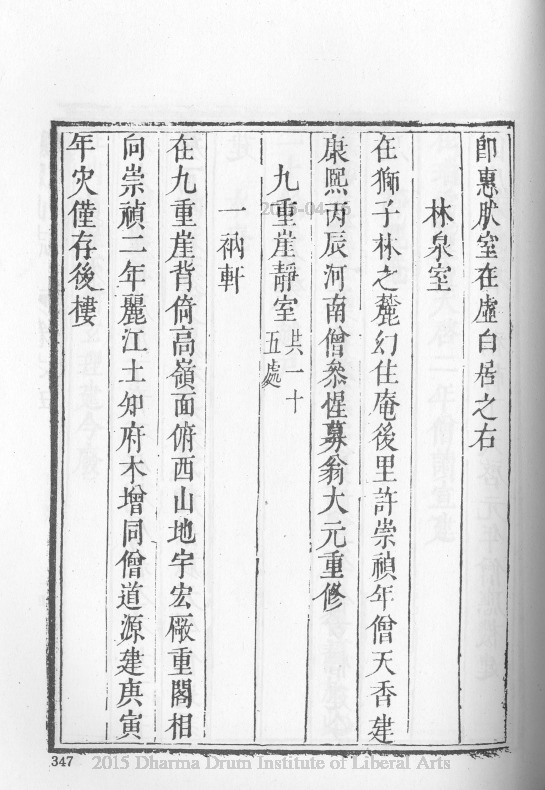 即惠㽵室在虛白居之右
林泉室
在獅子林之麓幻住庵後里許崇禎年僧天香建
康熙丙辰河南僧叅惺募翁大元重修
九重崖靜室共一十五處
一衲軒
在九重崖背倚高嶺面俯西山地宇宏厰重閣相
向崇禎二年麗江土知府木增同僧道源建庚寅
年灾僅存後樓
347
2015 Dharma Drum Institute of Liberal Arts